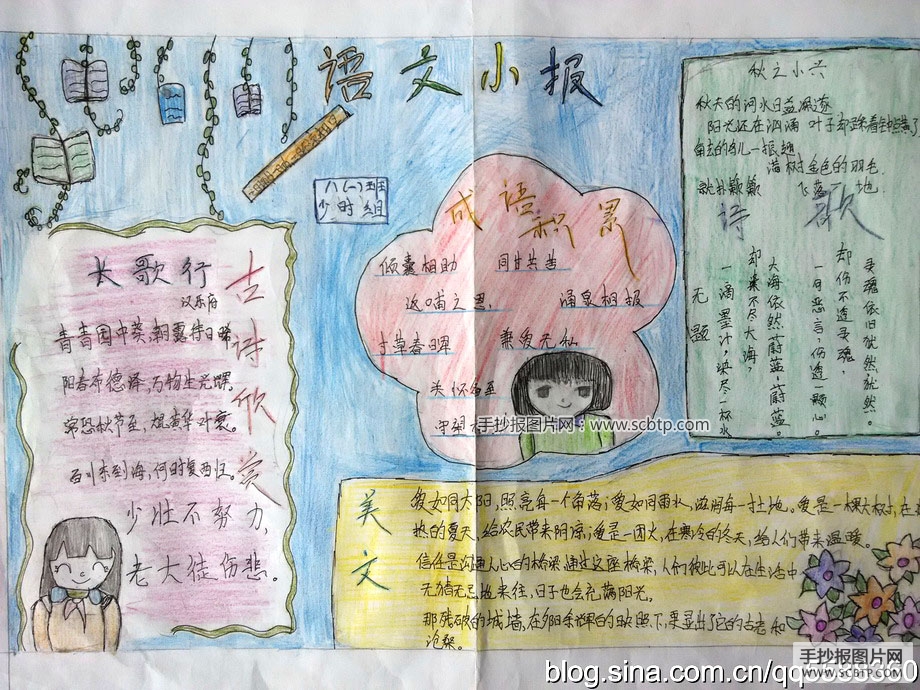 语文小报
八(一)班
少时组
古诗欣赏
长歌行
汉乐府
青青园中葵,朝露待日晞
阳春布德泽,万物生光辉。
常恐秋节至,焜黄华叶衰。
百川东到海,何时复西归。
少壮不努力,
老大徒伤悲。
成语积累
倾囊相助 同甘共苦
返哺之恩 涌泉相报
寸草春晖 兼爱无私
关怀
守望相
秋之小兴
秋天的河水日益凝凉
阳光还在汹涌 叶子却踩着
满树金色的羽毛
就扑簌簌 飞落 地
诗歌
无题
一滴墨汁,染尽一杯水
却染不尽大海,
大海依然蔚蓝,蔚蓝。
一句恶言,伤透一颗心。
却伤不透灵魂,
灵魂依旧犹然,犹然。
美文
爱如同太阳,照亮每一个角落;爱如同雨水,滋润每一寸土地。爱是一棵大树,在
热的夏天,给农民带来阴凉;爱是一团火,在寒冷的冬天,给人们带来温暖。
信任是沟通人心的桥梁,通过这座桥梁,人们彼此可以在生活中
无猜无忌地来往,日子也会充满阳光。
那残破的城墙,在夕阳余晖的映照下,更显出了它的古老和
沧桑。
手抄报图片网:www.scbtp.com
手抄报图片网
WWW.SCBTP.COM
blog.sina.com.cn/qq